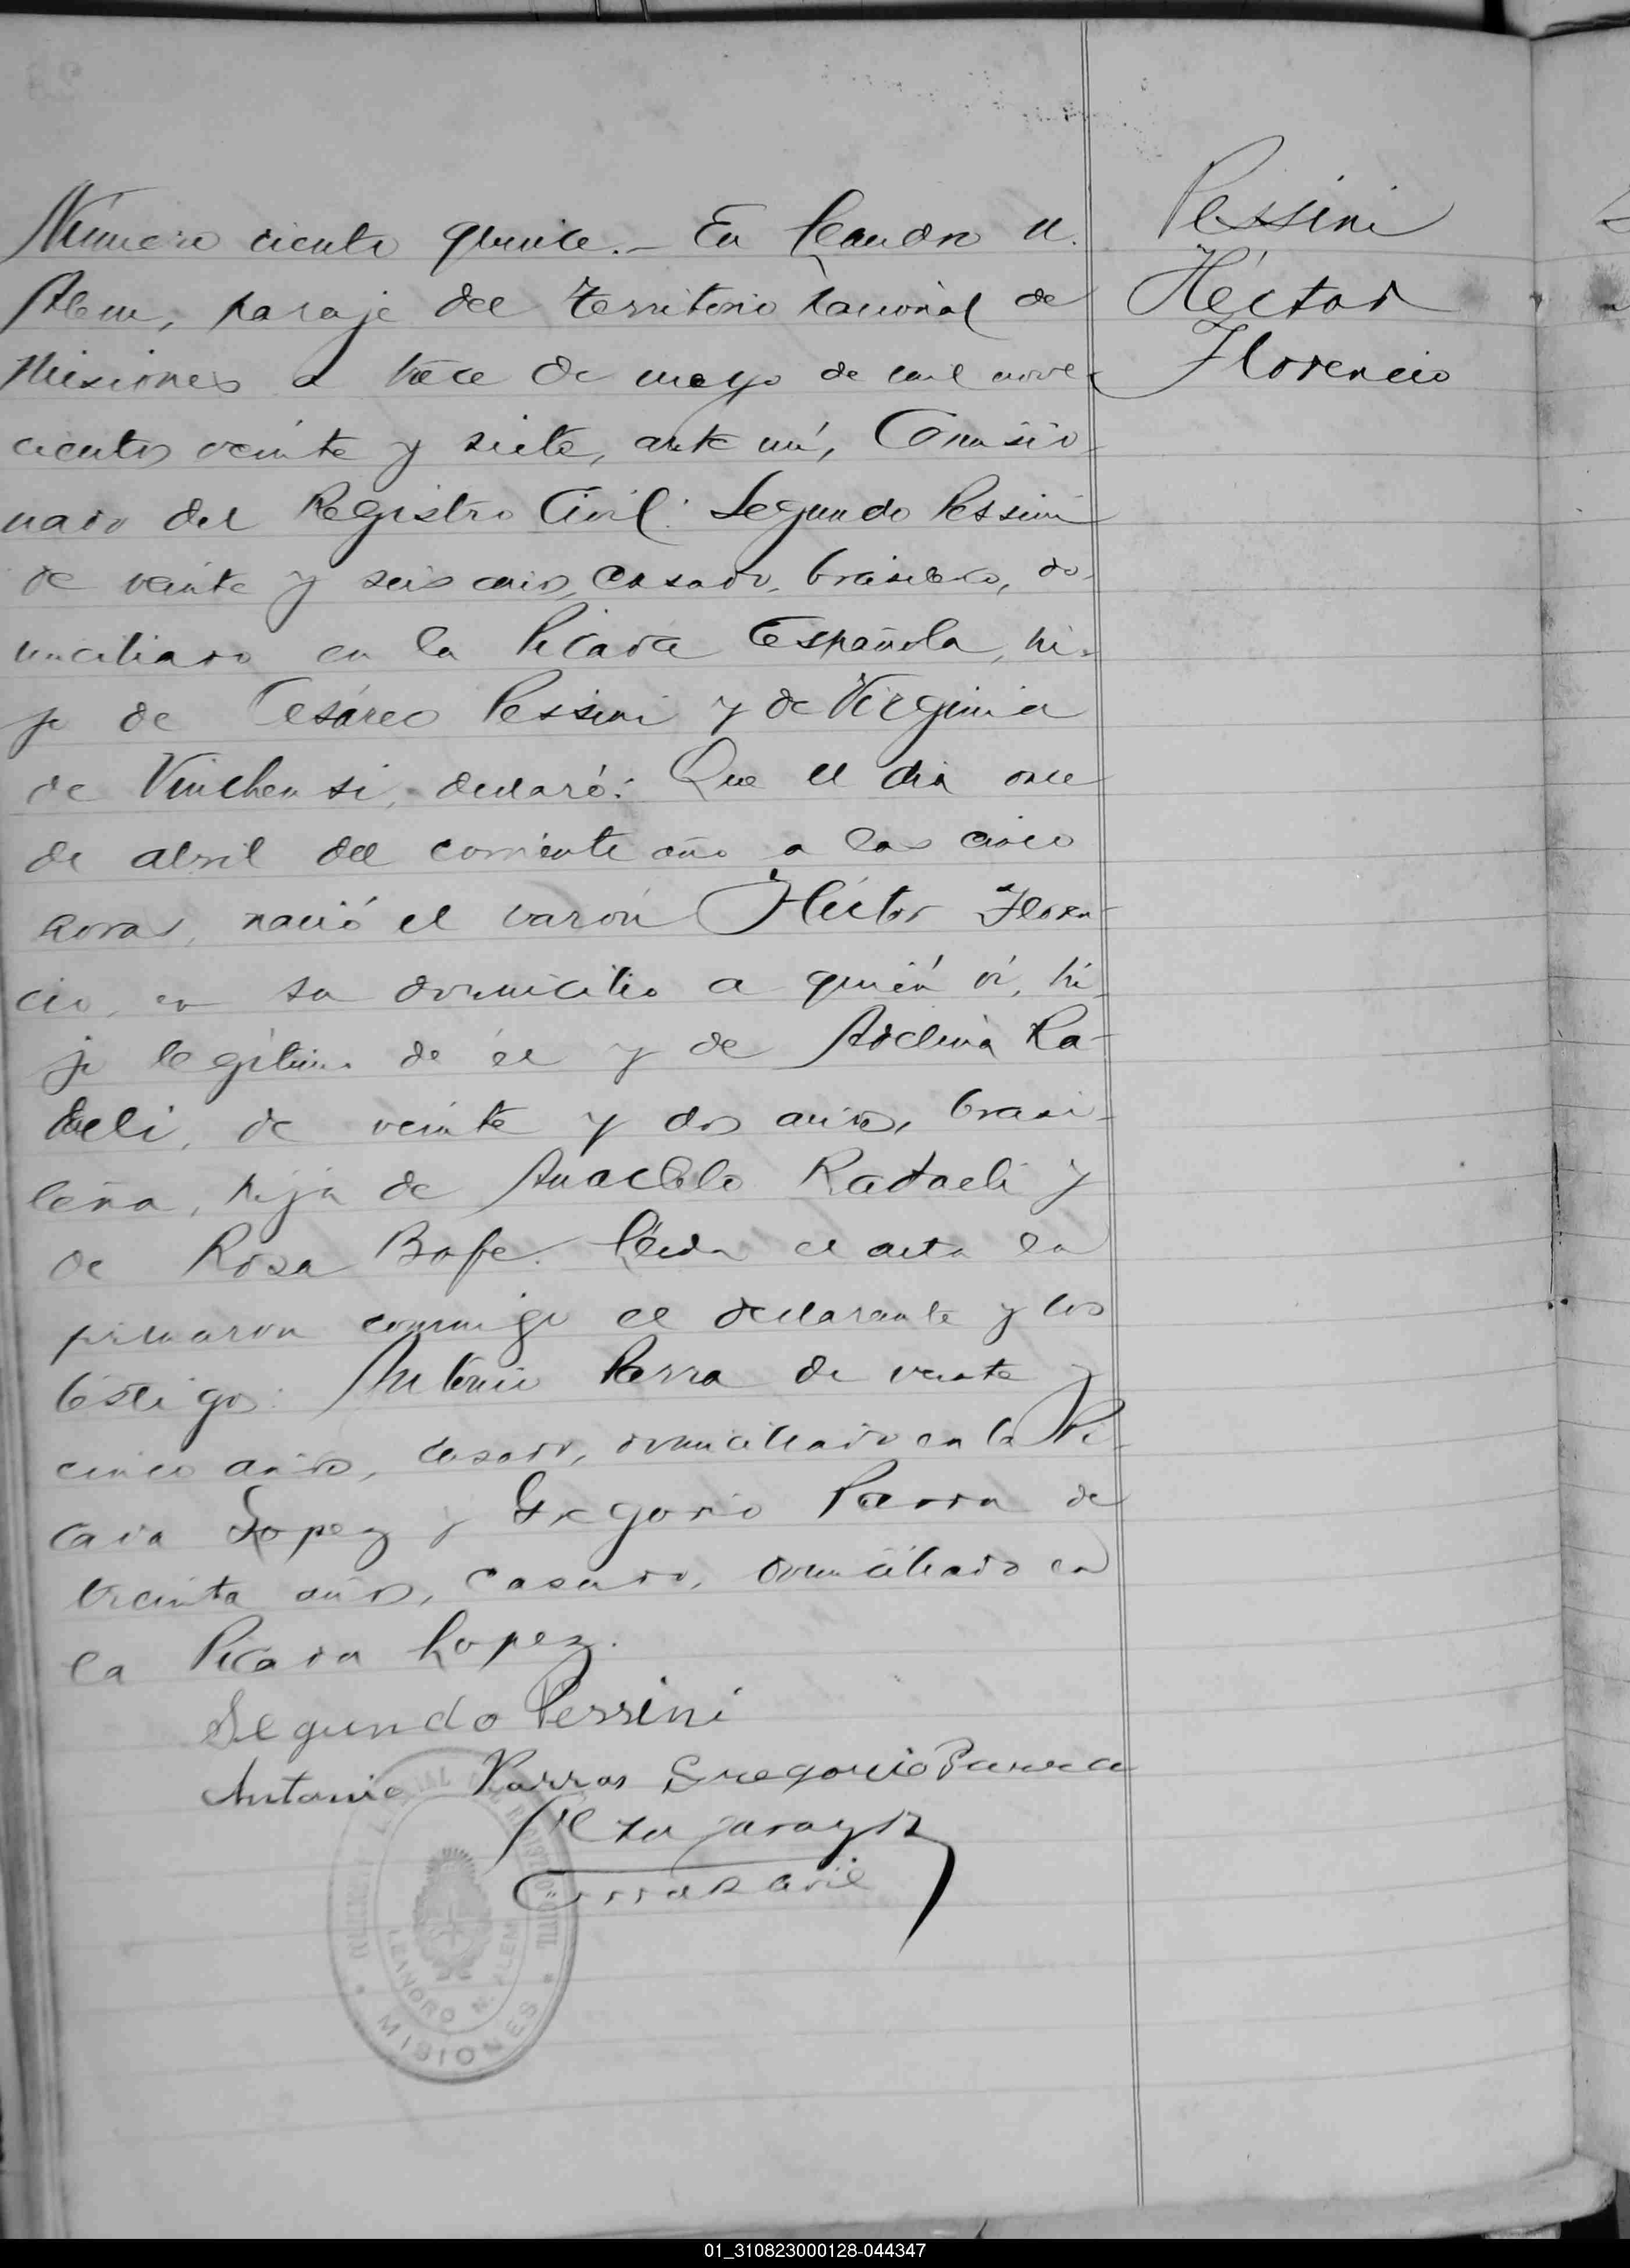 Número ciento quince.- En Leandro N.
Alem, paraje del territorio nacional de
Misiones a trece de mayo de mil nove-
cientos veinte y siete, ante mí, Comisio-
nado del Registro Civil: Segundo Pessini
de veinte y seis años, casado, brasilero, do-
miciliado en la Picada Española, hi-
jo de Cesáreo Pessini y de Virginia
de Vinchensi, declaró: Que el dia once
de abril del corriente año a las cinco
horas, nació el varón Héctor Floren-
cio, en su domicilio a quién ví, hi-
jo legítimo de él y de Adelina Ra-
daeli, de veinte y dos años, brasi-
leña, hija de Anacleto Radaeli y
de Rosa Bofe. Leida el acta la
firmaron conmigo el declarante y los
testigos: Antonio Parra de veinte y
cinco años, casado, domiciliado en la Pi-
cada Lopez y Gregorio Parra de
treinta años, casado, domiciliado en
la Picada Lopez.
Segundo Pessini
Antonio Parras Gregorio Parra
Pessini
Héctor
Florencio
REGISTRO CIVIL
LEANDRO N. ALEM
MISIONES
01_310823000128-044347